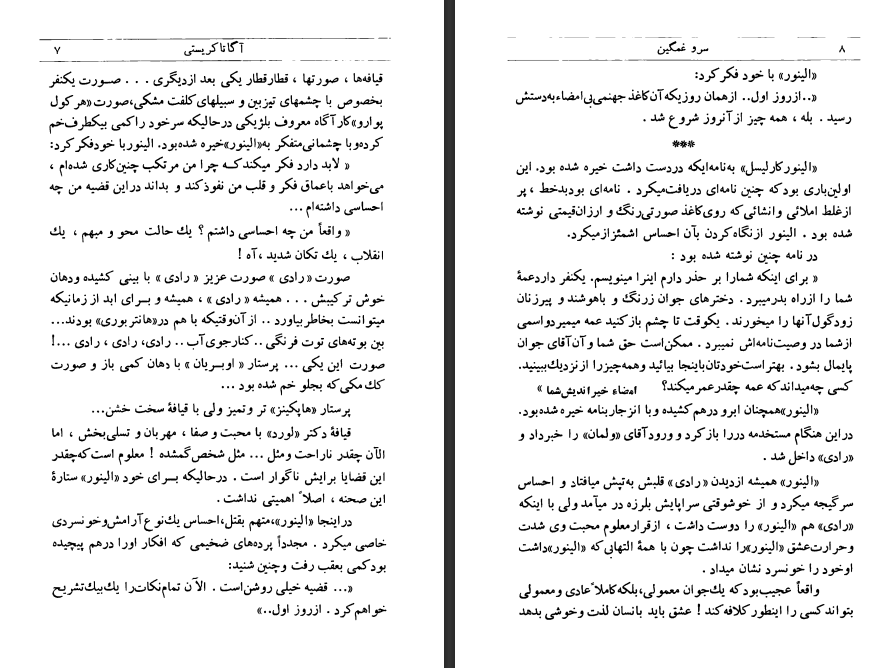 ۷ آگاتاکریستی
قیافه‌ها ، صورتها ، قطارقطار یکی بعد ازدیگری . . . صورت یکنفر
بخصوص با چشمهای تیزبین و سبیلهای کلفت مشکی،صورت«هرکول
پوارو»کارآگاه معروف بلژیکی درحالیکه سرخود راکمی بیکطرف‌خم
کرده‌وبا چشمانی‌متفکر به«الینور»خیره شده‌بود. الینور با خودفکرکرد:
« لابد دارد فکر میکندکه چرا من مرتکب چنین‌کاری شده‌ام ،
می‌خواهد باعماق فکر و قلب من نفوذکند و بداند دراین قضیه من چه
احساسی داشته‌ام ...
« واقعاً من چه احساسی داشتم ؟ یك حالت محو و مبهم ، یك
انقلاب ، یك تکان شدید ،آه !
صورت « رادی » صورت عزیز « رادی » با بینی کشیده ودهان
خوش ترکیبش . . . همیشه « رادی » ، همیشه و برای ابد از زمانیکه
میتوانست بخاطربیاورد .. ازآن‌وقتیکه با هم در«هانتربوری» بودند...
بین بوته‌های توت فرنگی ..کنارجوی‌آب.. رادی، رادی ، رادی ...!
صورت این یکی ... پرستار « اوبریان » با دهان کمی باز و صورت
کك مکی‌که بجلو خم شده بود ...
پرستار «هاپکینز» تر وتمیز ولی با قیافهٔ سخت خشن...
قیافهٔ دکتر «لورد» با محبت و صفا ، مهربان و تسلی‌بخش ، اما
الآن چقدر ناراحت ومثل ... مثل شخص‌گمشده ! معلوم است‌که‌چقدر
این قضایا برایش ناگوار است . درحالیکه برای خود «الینور» ستارهٔ
این صحنه ، اصلاً اهمیتی نداشت .
دراینجا «الینور»،متهم بقتل،احساس یك‌نوع آرامش‌وخونسردی
خاصی میکرد . مجدداً پرده‌های ضخیمی که افکار اورا درهم پیچیده
بودکمی بعقب رفت وچنین شنید:
«... قضیه خیلی روشن‌است . الآن تمام‌نکات‌را یك‌بیك‌تشریح
خواهم‌کرد . ازروز اول..»
سرو غمگین ۸
«الینور» با خود فکرکرد:
«..ازروز اول.. ازهمان روزیکه‌آن‌کاغذ جهنمی‌بی‌امضاء‌به‌دستش
رسید . بله ، همه چیز ازآنروز شروع شد .
***
«الینورکارلیسل» به‌نامه‌ایکه دردست داشت خیره شده بود. این
اولین‌باری بودکه چنین نامه‌ای دریافت‌میکرد . نامه‌ای بودبدخط ، پر
ازغلط املائی وانشائی‌که روی‌کاغذ صورتی‌رنگ و ارزان‌قیمتی نوشته
شده بود . الینور ازنگاه‌کردن بآن احساس اشمئزازمیکرد.
در نامه چنین نوشته شده بود :
« برای اینکه شمارا بر حذر دارم اینرا مینویسم. یکنفر داردعمهٔ
شما را ازراه بدرمیبرد . دخترهای جوان زرنگ و باهوشند و پیرزنان
زودگول‌آنها را میخورند . یکوقت تا چشم بازکنید عمه میمیردواسمی
ازشما در وصیت‌نامه‌اش نمیبرد . ممکن‌است حق شما وآن‌آقای جوان
پایمال بشود . بهتراست‌خودتان‌باینجا بیائید وهمه‌چیزرا ازنزدیك‌ببینید.
کسی چه‌میداندکه عمه چقدرعمرمیکند؟ امضاء خیراندیش‌شما »
«الینور»همچنان ابرو درهم‌کشیده و با انزجاربنامه خیره شده‌بود.
دراین هنگام مستخدمه دررا بازکرد و ورودآقای «ولمان» را خبرداد و
«رادی» داخل شد .
«الینور» همیشه ازدیدن «رادی» قلبش به‌تپش میافتاد و احساس
سرگیجه میکرد و از خوشوقتی سراپایش بلرزه در میآمد ولی با اینکه
«رادی» هم «الینور» را دوست داشت ، ازقرارمعلوم محبت وی شدت
وحرارت‌عشق «الینور»را نداشت چون با همهٔ التهابی‌که «الینور»داشت
اوخود را خونسرد نشان میداد .
واقعاً عجیب‌بودکه یك‌جوان معمولی،بلکه‌کاملاً عادی ومعمولی
بتواندکسی را اینطورکلافه‌کند ! عشق باید بانسان لذت وخوشی بدهد